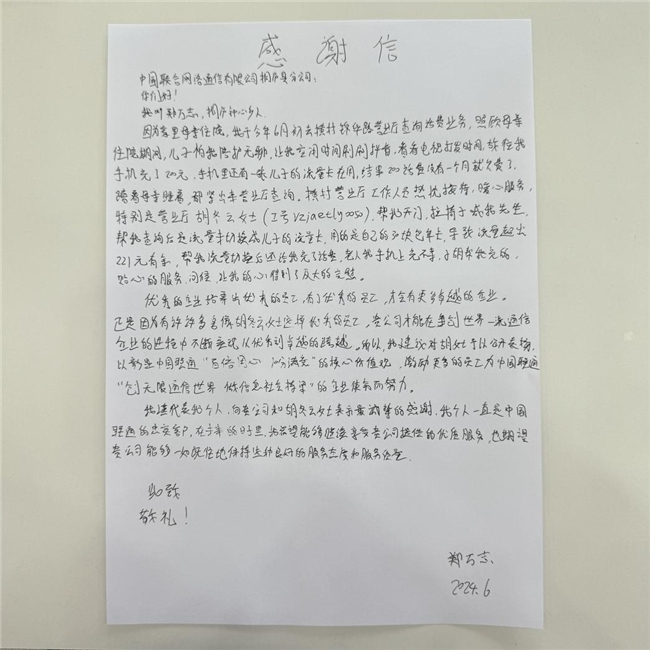 感谢信
中国联合网络通信有限公司桐庐县分公司:
你们好!
我叫郑万志,桐庐钟山乡人。
因为家里母亲住院,我于今年6月初去横村 营业厅查询话费业务,照顾母亲
住院期间,儿子怕我陪护无聊,让我空闲时间刷刷抖音,看看电视打发时间,
手机充了120元,手机里还有一张儿子的流量卡在用,结果200话费没有一个月就欠费了,
随着母亲睡着,都学出来营业厅查询。横村营业厅工作人员热忱接待,暖心服务,
特别是营业厅胡冬云女士(工号 ),帮我开门,拉椅子
帮我查询后是流量卡切换成儿子的流量卡,用的是自己的 ,导致流量超出
221元有余,帮我流量切换后还给我充了话费,老人我手机上充不来,
贴心的服务,问候,让我的心得到了及大的安慰。
优秀的企业培养出优秀的员工,有了优秀的员工,才会有卖多卓越的企业。
正是因为有许许多多像胡冬云女士这样优秀的员工,贵公司才能在争创世界一流通信
企业的进程中不断实现从优秀到卓越的跨越。所以,我建议对胡女士予以公开表扬,
以彰显中国联通“ ”的核心价值观,激励更多的员工为中国联通
“创无限通信世界 做信息社会栋梁”的企业使命而努力。
我谨代表我个人,向贵公司和胡冬云女士表示最诚挚的感谢。我个人一直是中国
联通的忠实客户,在未来的日子里,我希望能够继续享受贵公司提供的优质服务,也期望
贵公司能够一如既往地保持这种良好的服务态度和服务质量。
此致
敬礼!
郑万志
2024.6